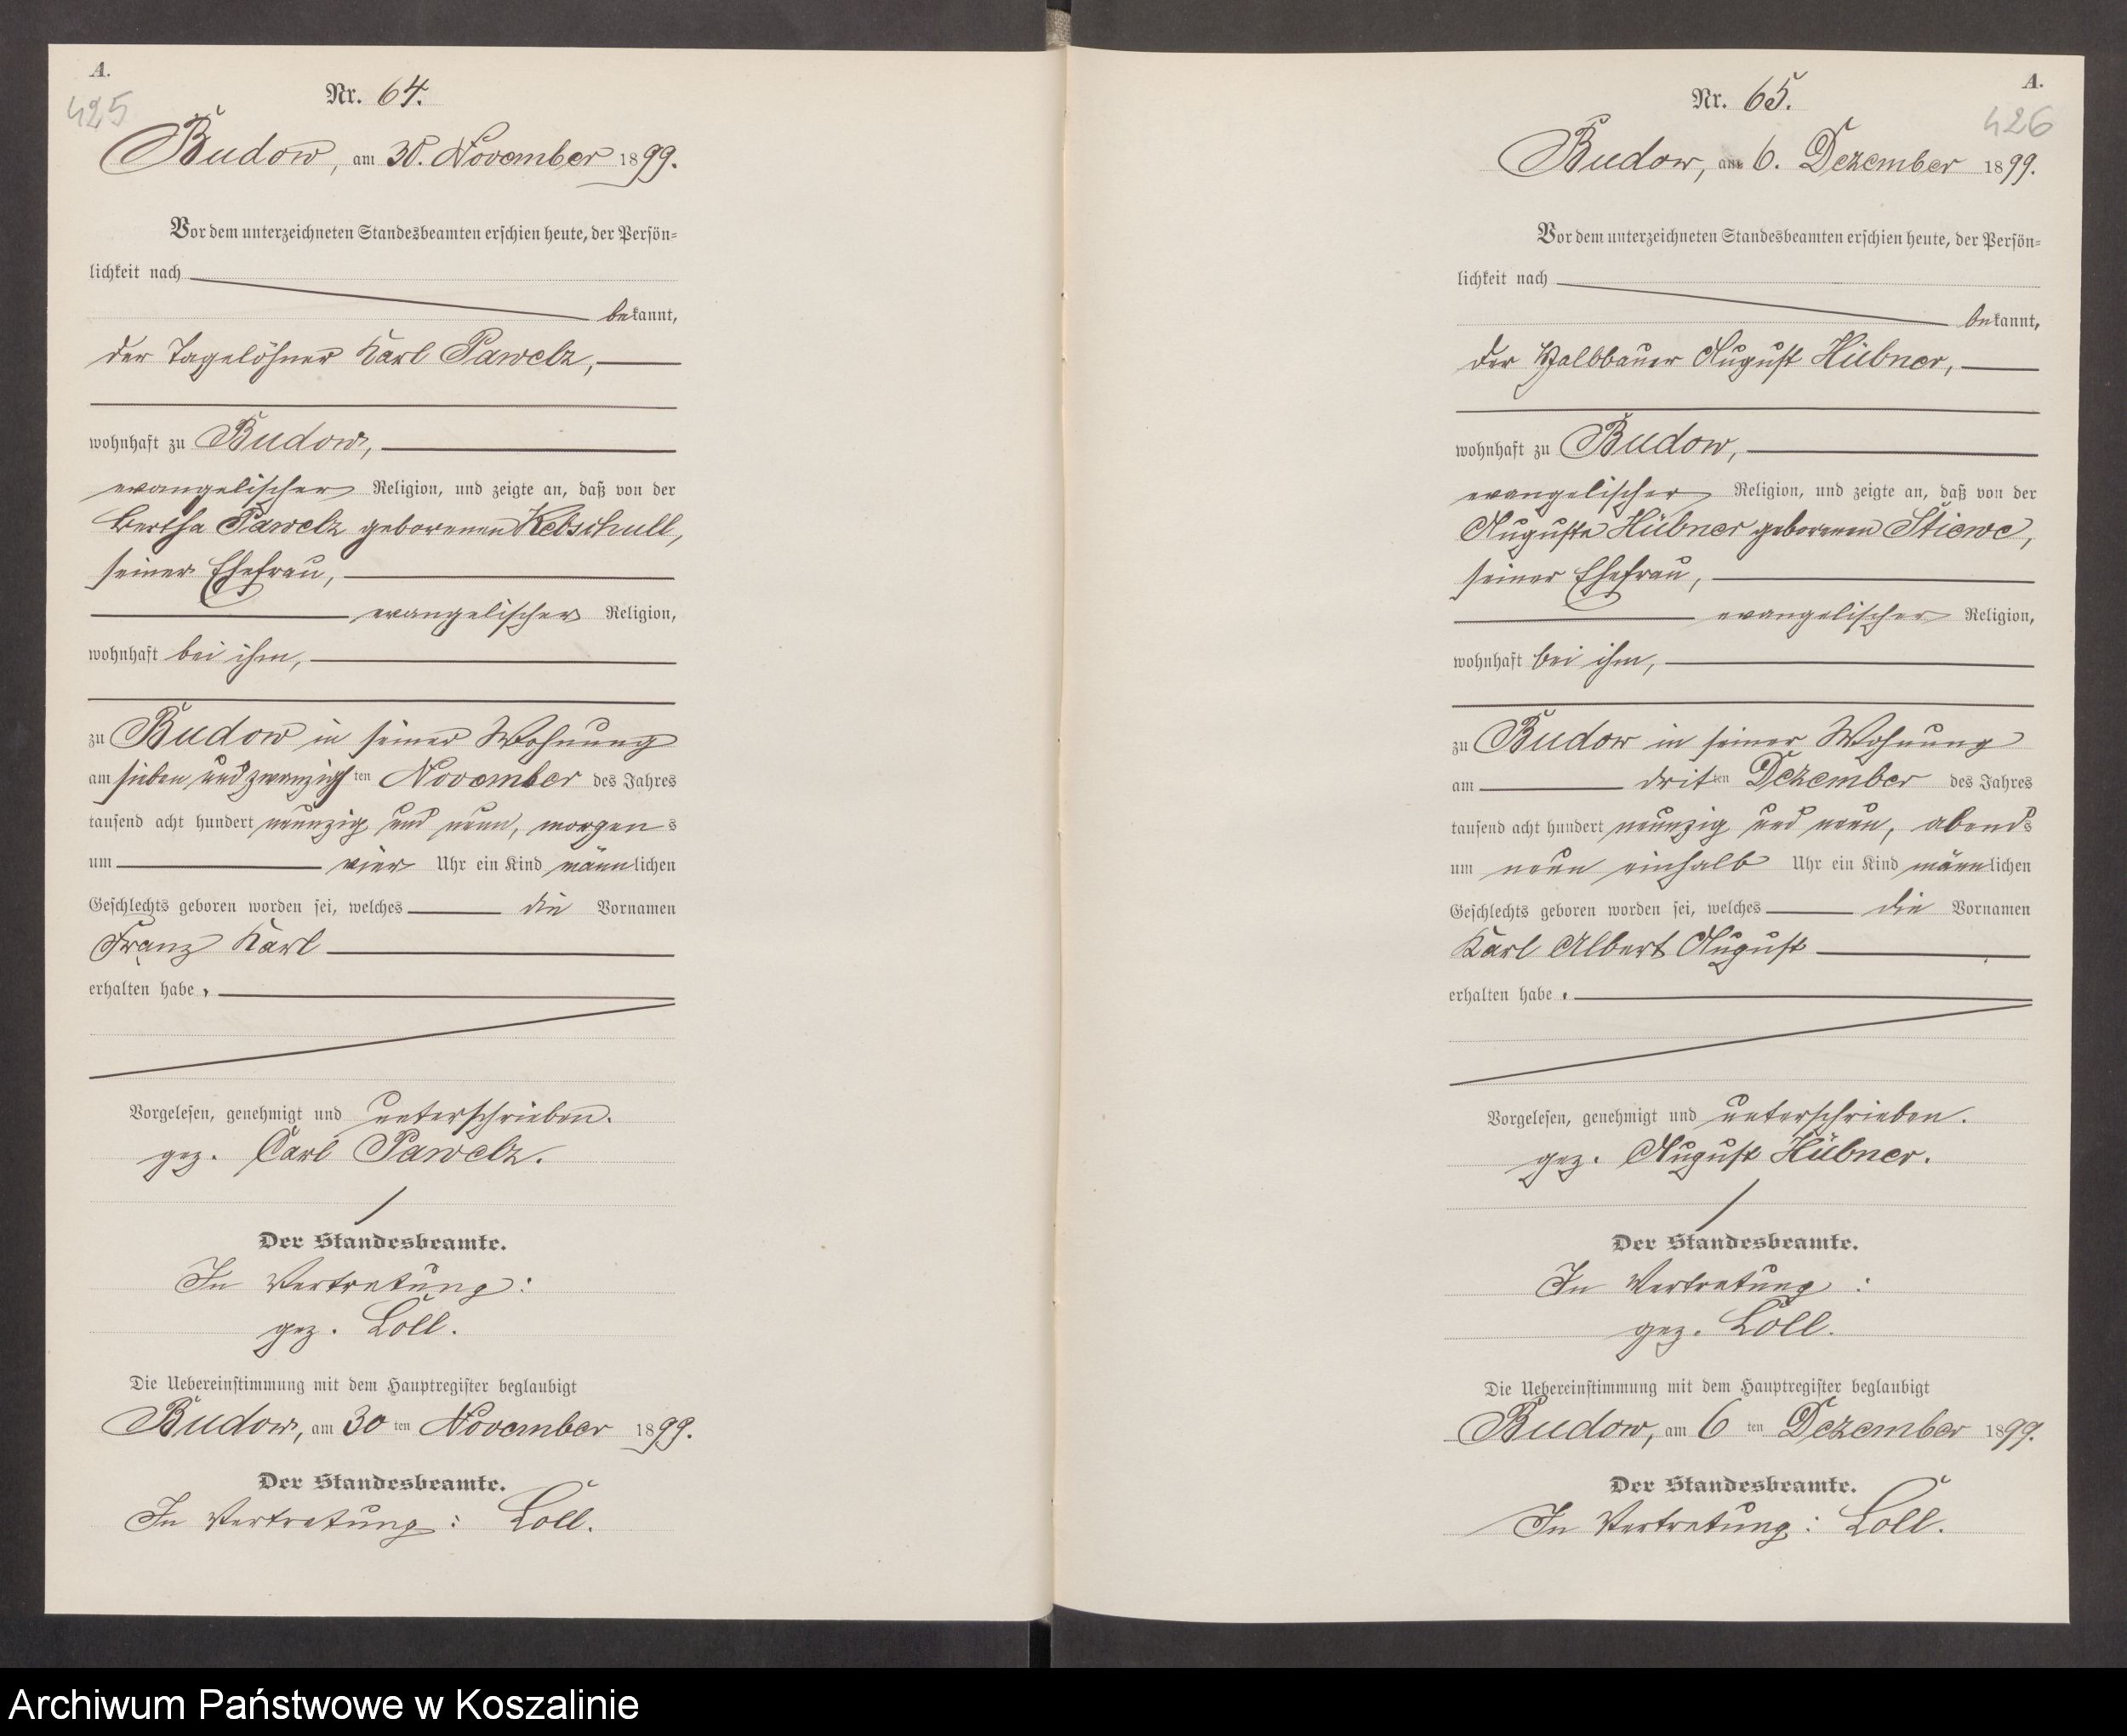 A.
425
Nr. 64.
Budow, am 30. November 1899.
Vor dem unterzeichneten Standesbeamten erschien heute, der Persön-
lichkeit nach
bekannt,
der Tagelöhner Karl Pawelz,
wohnhaft zu Budow,
evangelischer Religion, und zeigte an, daß von der
Bertha Pawelz geborenen Kebschull,
seiner Ehefrau,
evangelischer Religion,
wohnhaft bei ihm,
zu Budow in seiner Wohnung
am sieben und zwanzigsten November des Jahres
tausend acht hundert neunzig und neun, morgens
um vier Uhr ein Kind männlichen
Geschlechts geboren worden sei, welches die Vornamen
Franz Karl
erhalten habe,
Vorgelesen, genehmigt und unterschrieben.
gez. Carl Pawelz.
Der Standesbeamte.
In Vertretung:
gez. Loll.
Die Uebereinstimmung mit dem Hauptregister beglaubigt
Budow, am 30ten November 1899.
Der Standesbeamte.
In Vertretung: Loll.
A.
426
Nr. 65.
Budow, am 6. Dezember 1899.
Vor dem unterzeichneten Standesbeamten erschien heute, der Persön-
lichkeit nach
bekannt,
der Halbbauer August Hübner,
wohnhaft zu Budow,
evangelischer Religion, und zeigte an, daß von der
Auguste Hübner geborenen Stiewe,
seiner Ehefrau,
evangelischer Religion,
wohnhaft bei ihm,
zu Budow in seiner Wohnung
am dritten Dezember des Jahres
tausend acht hundert neunzig und neun, abends
um neun einhalb Uhr ein Kind männlichen
Geschlechts geboren worden sei, welches die Vornamen
Karl Albert August
erhalten habe.
Vorgelesen, genehmigt und unterschrieben.
gez. August Hübner.
Der Standesbeamte.
In Vertretung:
gez. Loll.
Die Uebereinstimmung mit dem Hauptregister beglaubigt
Budow, am 6 ten Dezember 1899.
Der Standesbeamte.
In Vertretung: Loll.
Archiwum Państwowe w Koszalinie